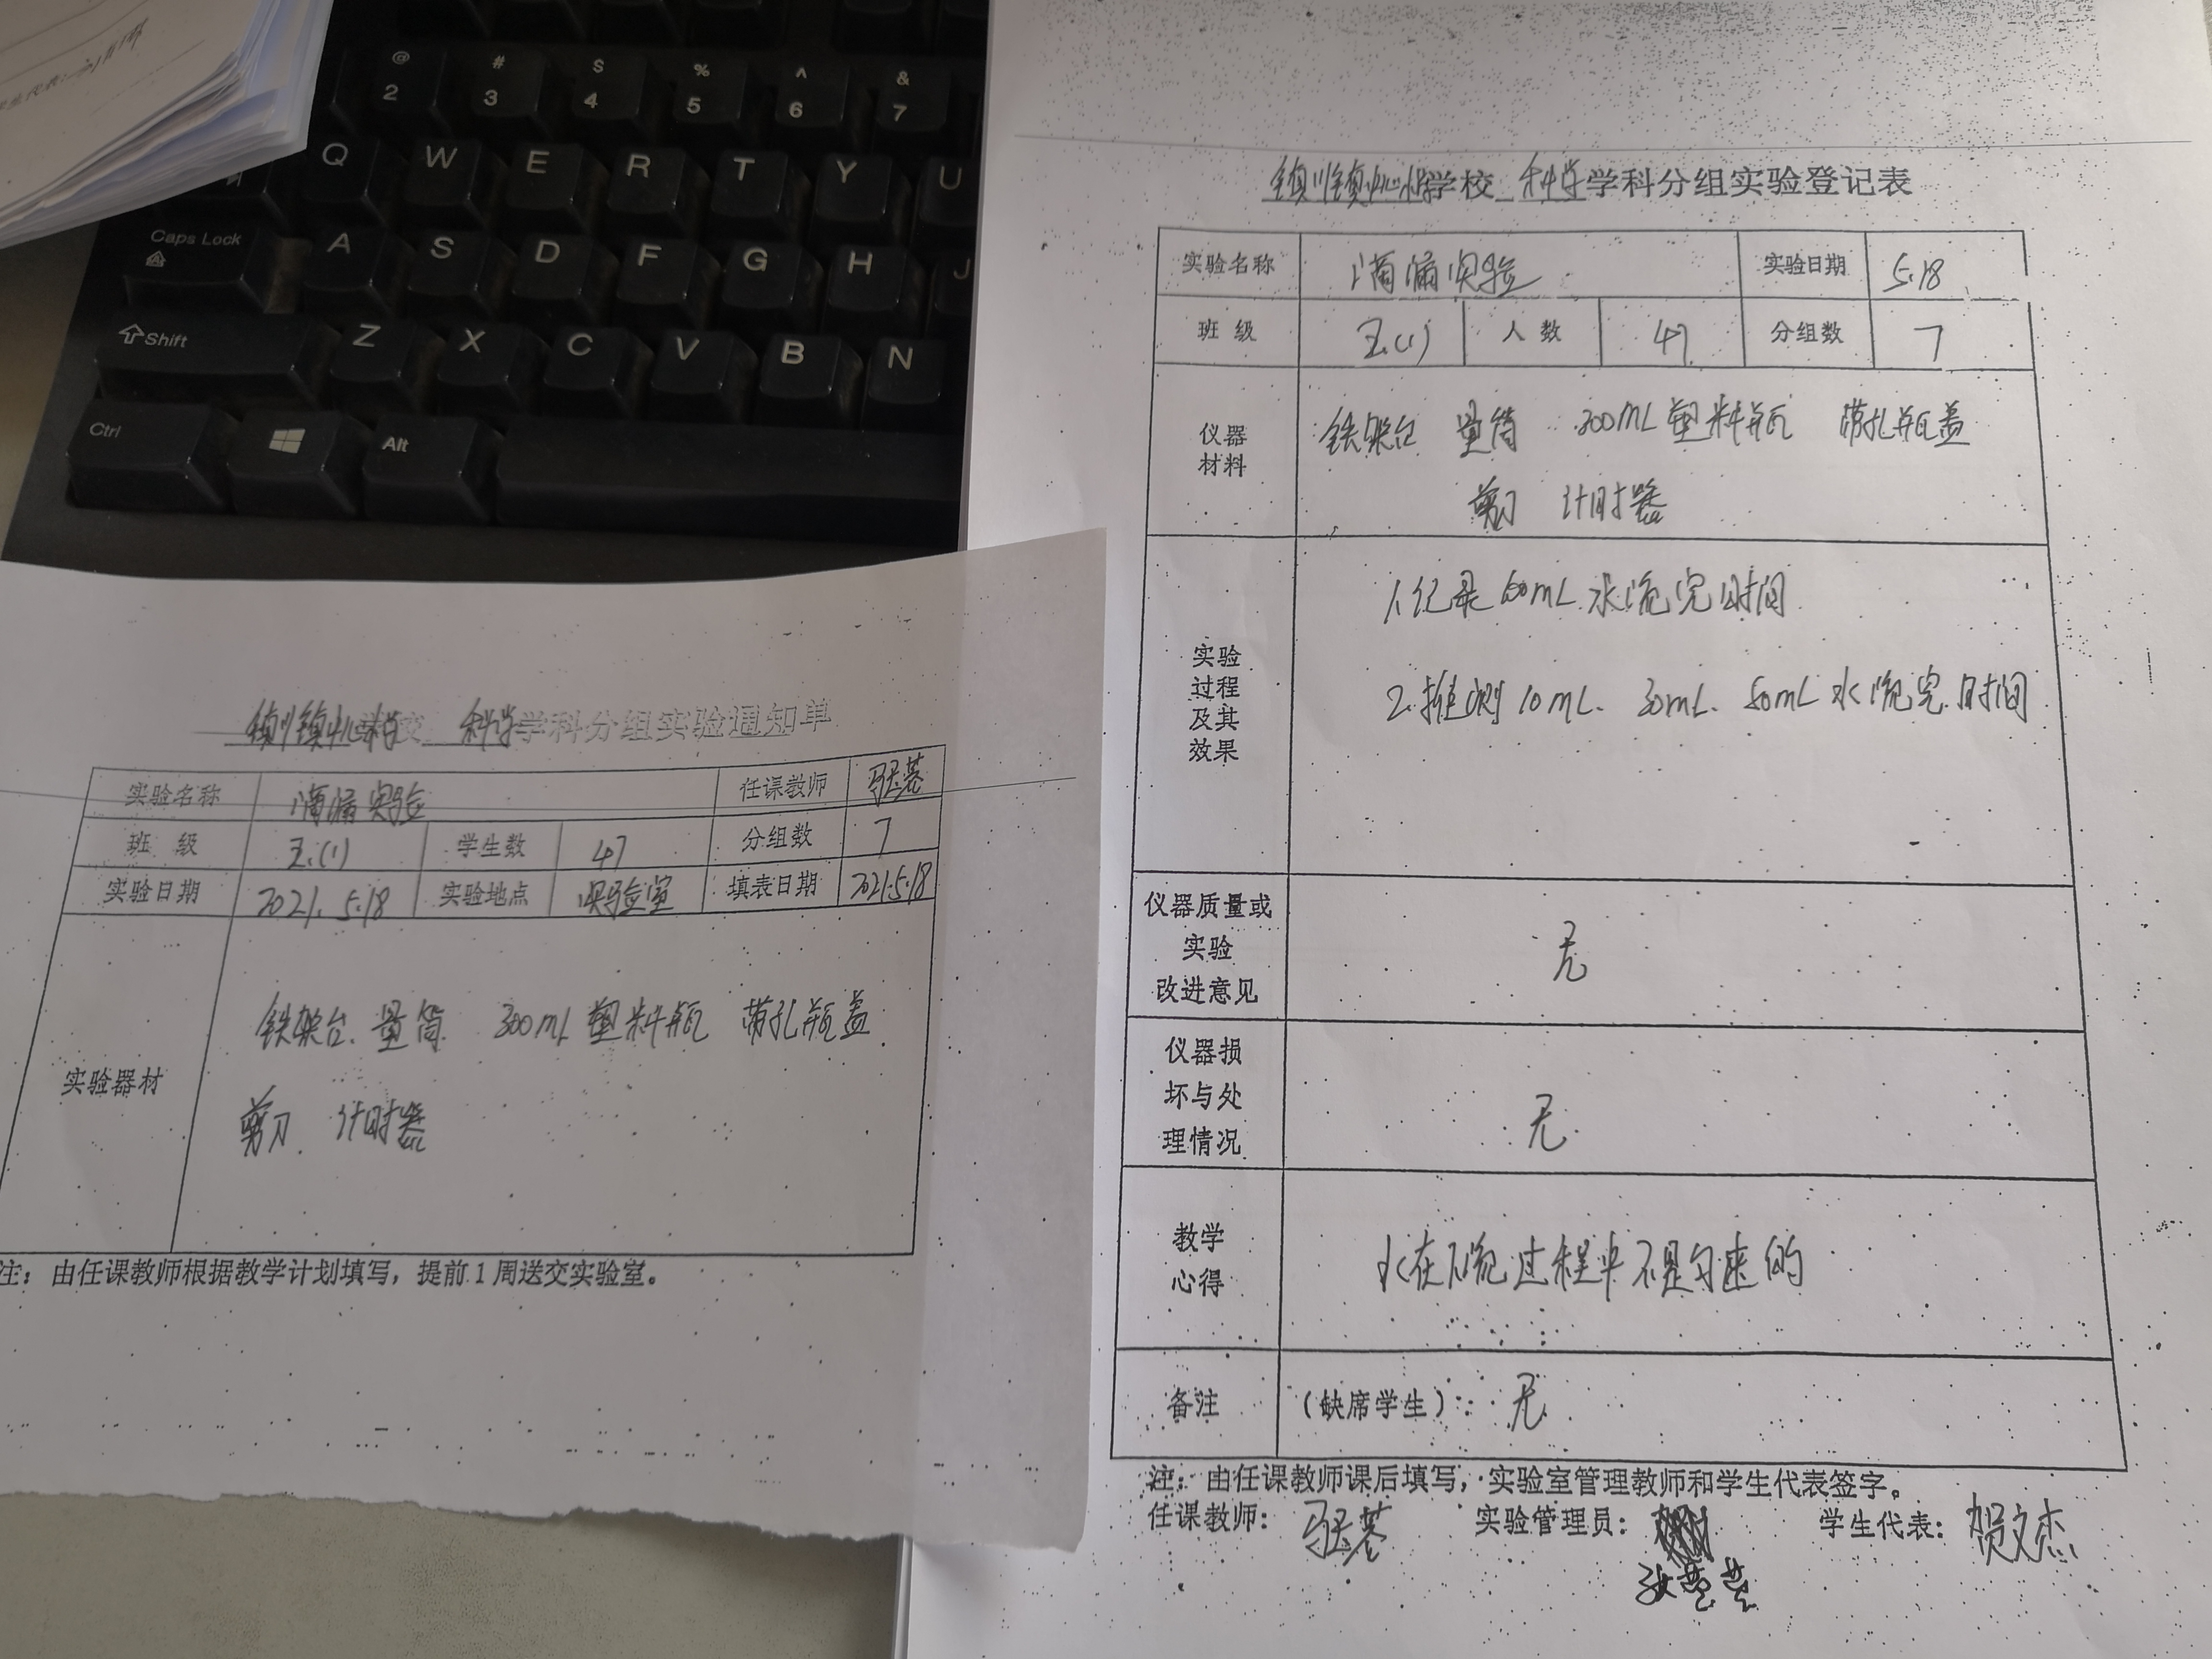 @ # $ % ^ &
2 3 4 5 6 7
Q W E R T Y U
Caps Lock A S D F G H J
Shift Z X C V B N
Ctrl Alt
镇川镇中心小学学校 科学学科分组实验登记表
实验名称 滴漏实验 实验日期 5.18
班级 五.(1) 人数 47 分组数 7
仪器材料 铁架台 量筒 300mL塑料瓶 带孔瓶盖
剪刀 计时器
实验过程及其效果
1.纪录100mL水流完时间
2.推测10mL、30mL、50mL水流完时间
仪器质量或实验改进意见 无
仪器损坏与处理情况 无
教学心得 水在下流过程中不是匀速的
备注 (缺席学生): 无
注: 由任课教师课后填写, 实验室管理教师和学生代表签字。
任课教师: 实验管理员: 学生代表: 贺文杰
科学学科分组实验通知单
实验名称 滴漏实验 任课教师
班级 五.(1) 学生数 47 分组数 7
实验日期 2021.5.18 实验地点 实验室 填表日期 2021.5.18
实验器材
铁架台. 量筒. 300mL塑料瓶 带孔瓶盖
剪刀. 计时器
注: 由任课教师根据教学计划填写, 提前1周送交实验室。